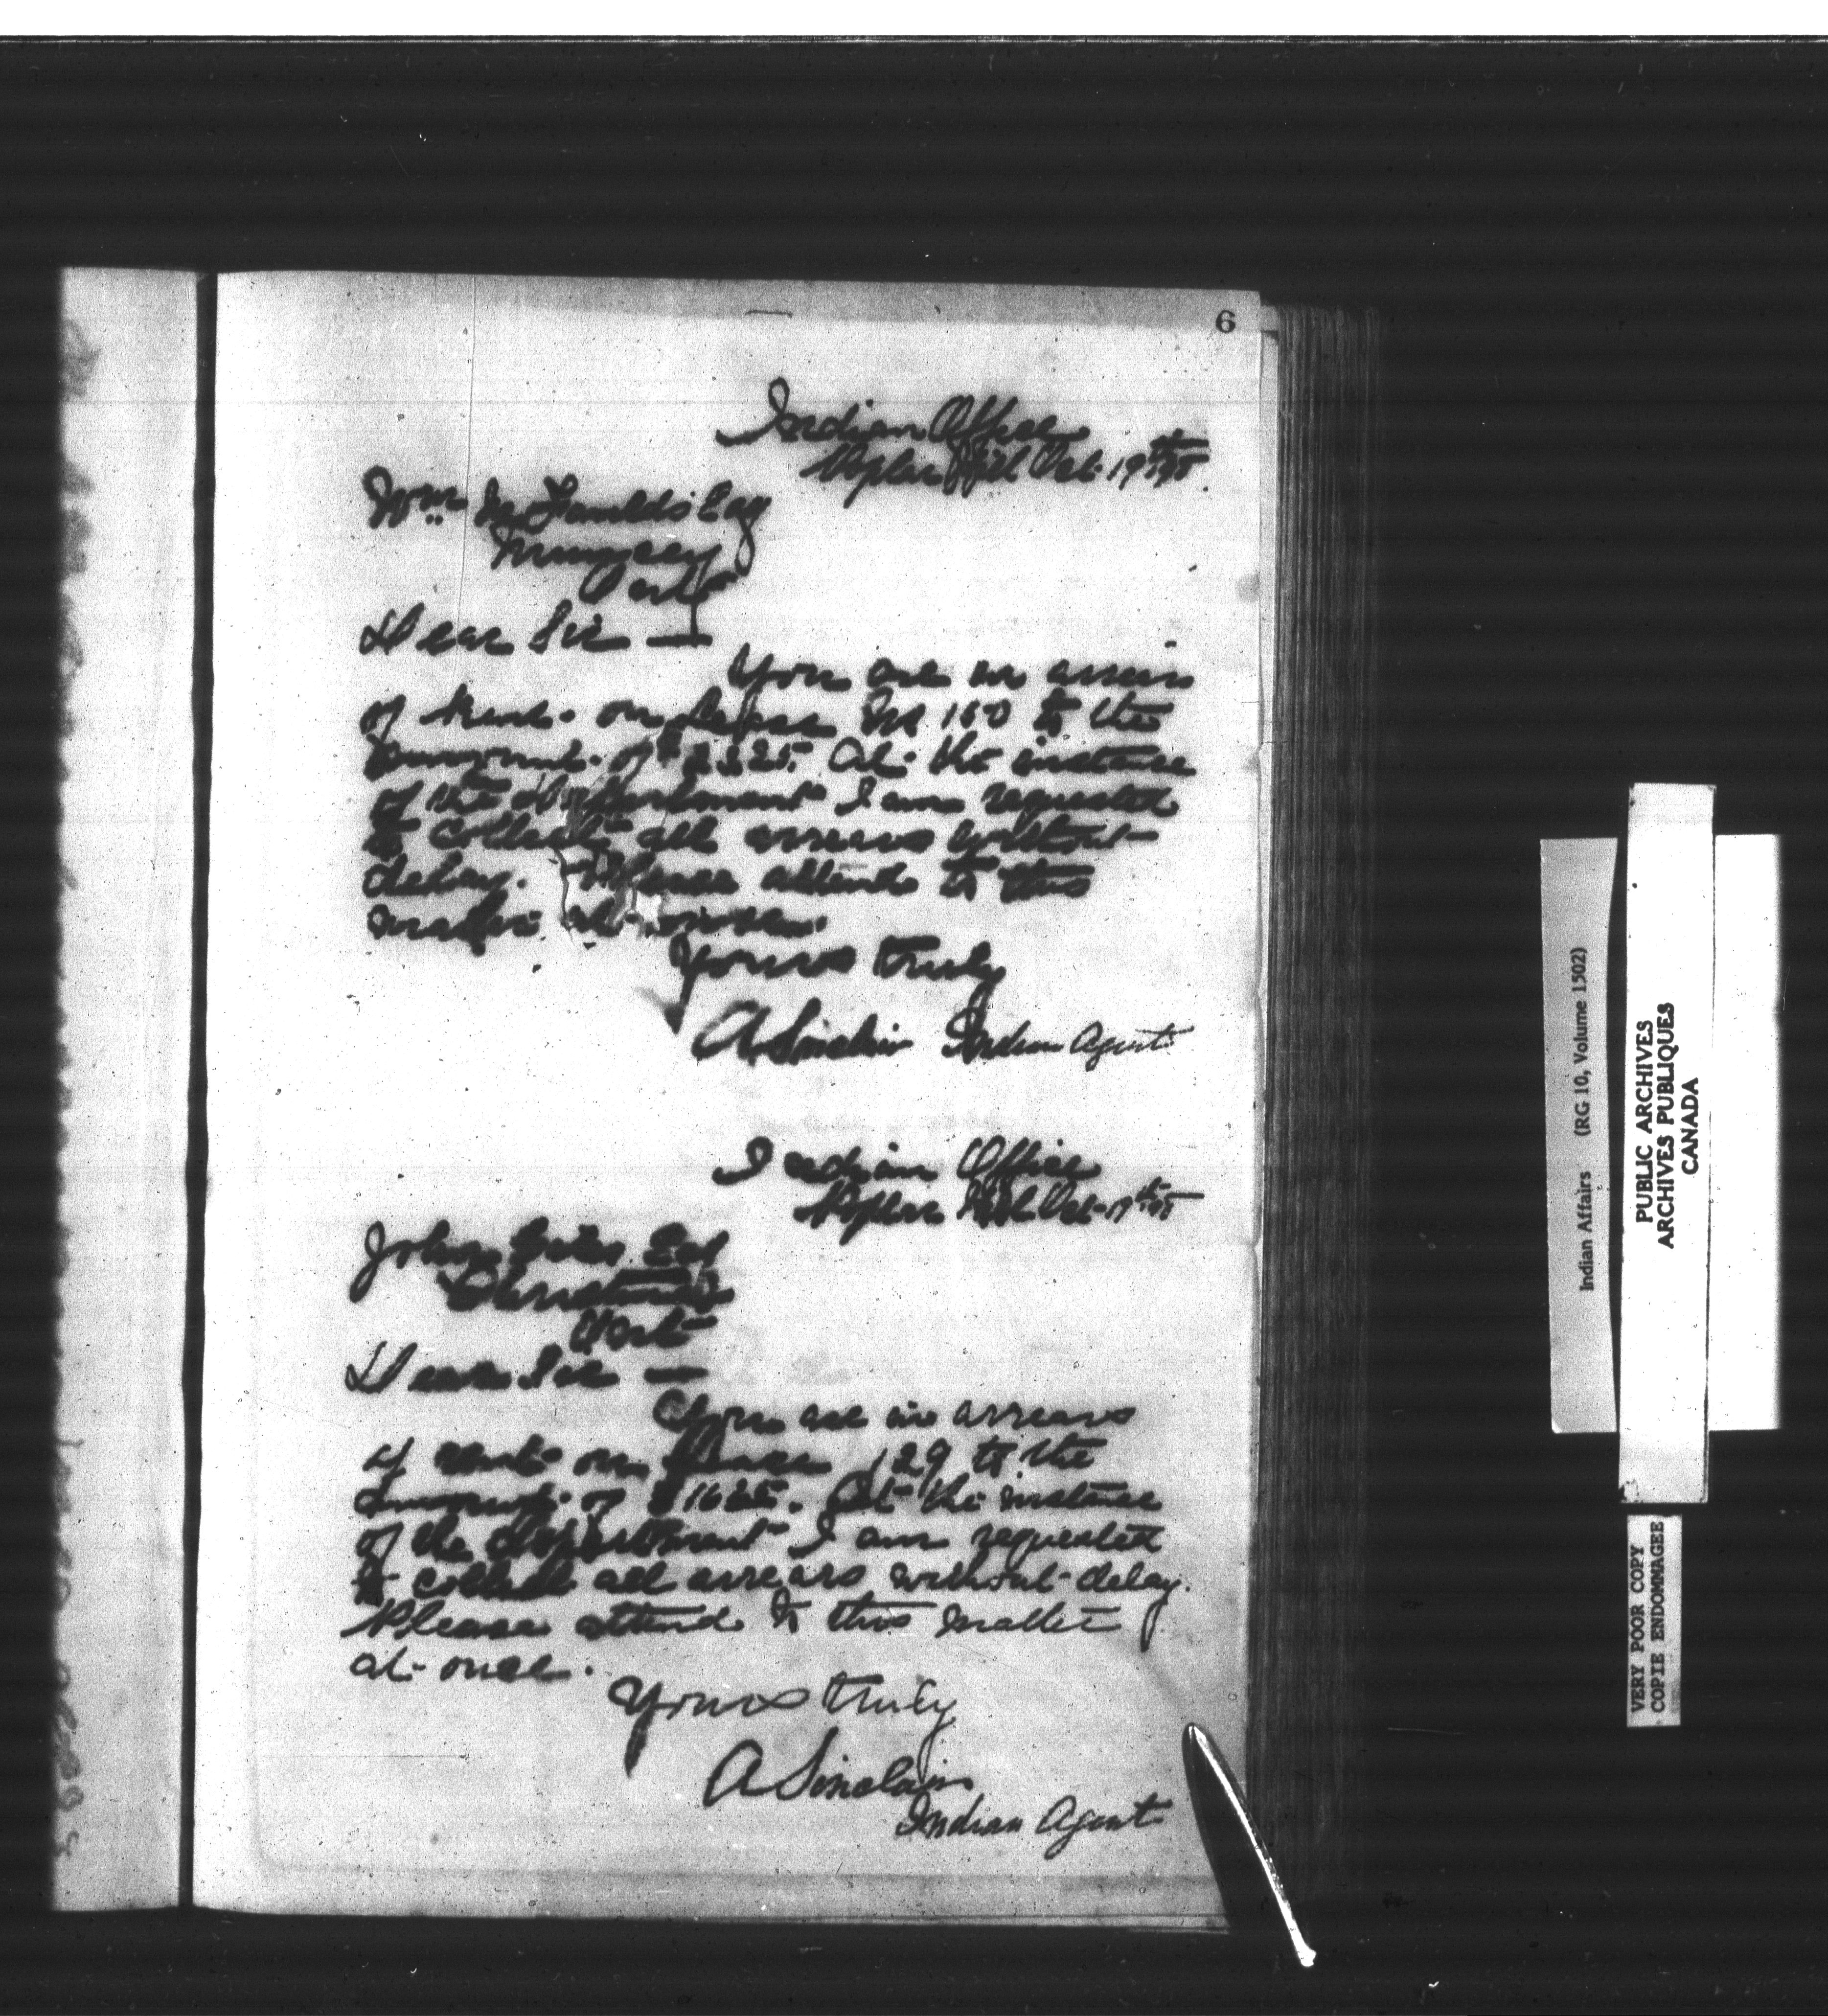 6
Indian Office
Poplar Hill Oct 19th/95
Wm
Esq
Muncey
Ont
Dear Sir —
You are in arrears
of Rent on Lease No 150 to the
amount of $ At the instance
of the department I am requested
to collect all arrears without
delay. Please attend to this
matter at once.
Yours truly
A Sinclair Indian Agent
Indian Office
Poplar Hill Oct 19th/95
John Esq
Ont
Dear Sir —
You are in arrears
of rent on Lease 129 to the
amount of $ At the instance
of the department I am requested
to collect all arrears without delay.
Please attend to this matter
at once.
Yours truly
A Sinclair
Indian Agent
Indian Affairs (RG 10, Volume 1502)
PUBLIC ARCHIVES
ARCHIVES PUBLIQUES
CANADA
VERY POOR COPY
COPIE ENDOMMAGEE